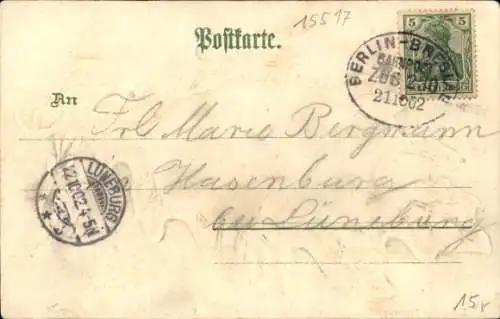 15517
Postkarte.
5 5
BERLIN-BRES
BAHNPOST
ZUG
211002
An
Frl Marie Bergmann
Hasenburg
by Lüneburg
LÜNEBURG
22.10.02.4-5N
15r